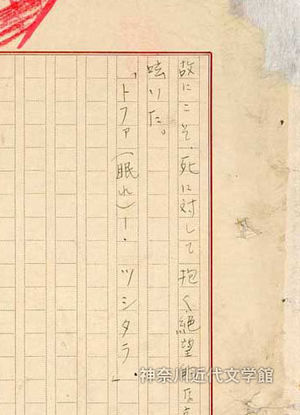 故にこそ、死に対して抱く絶望的な
呟いた。
「トファ(眠れ)ー・ツシタラ」
神奈川近代文学館